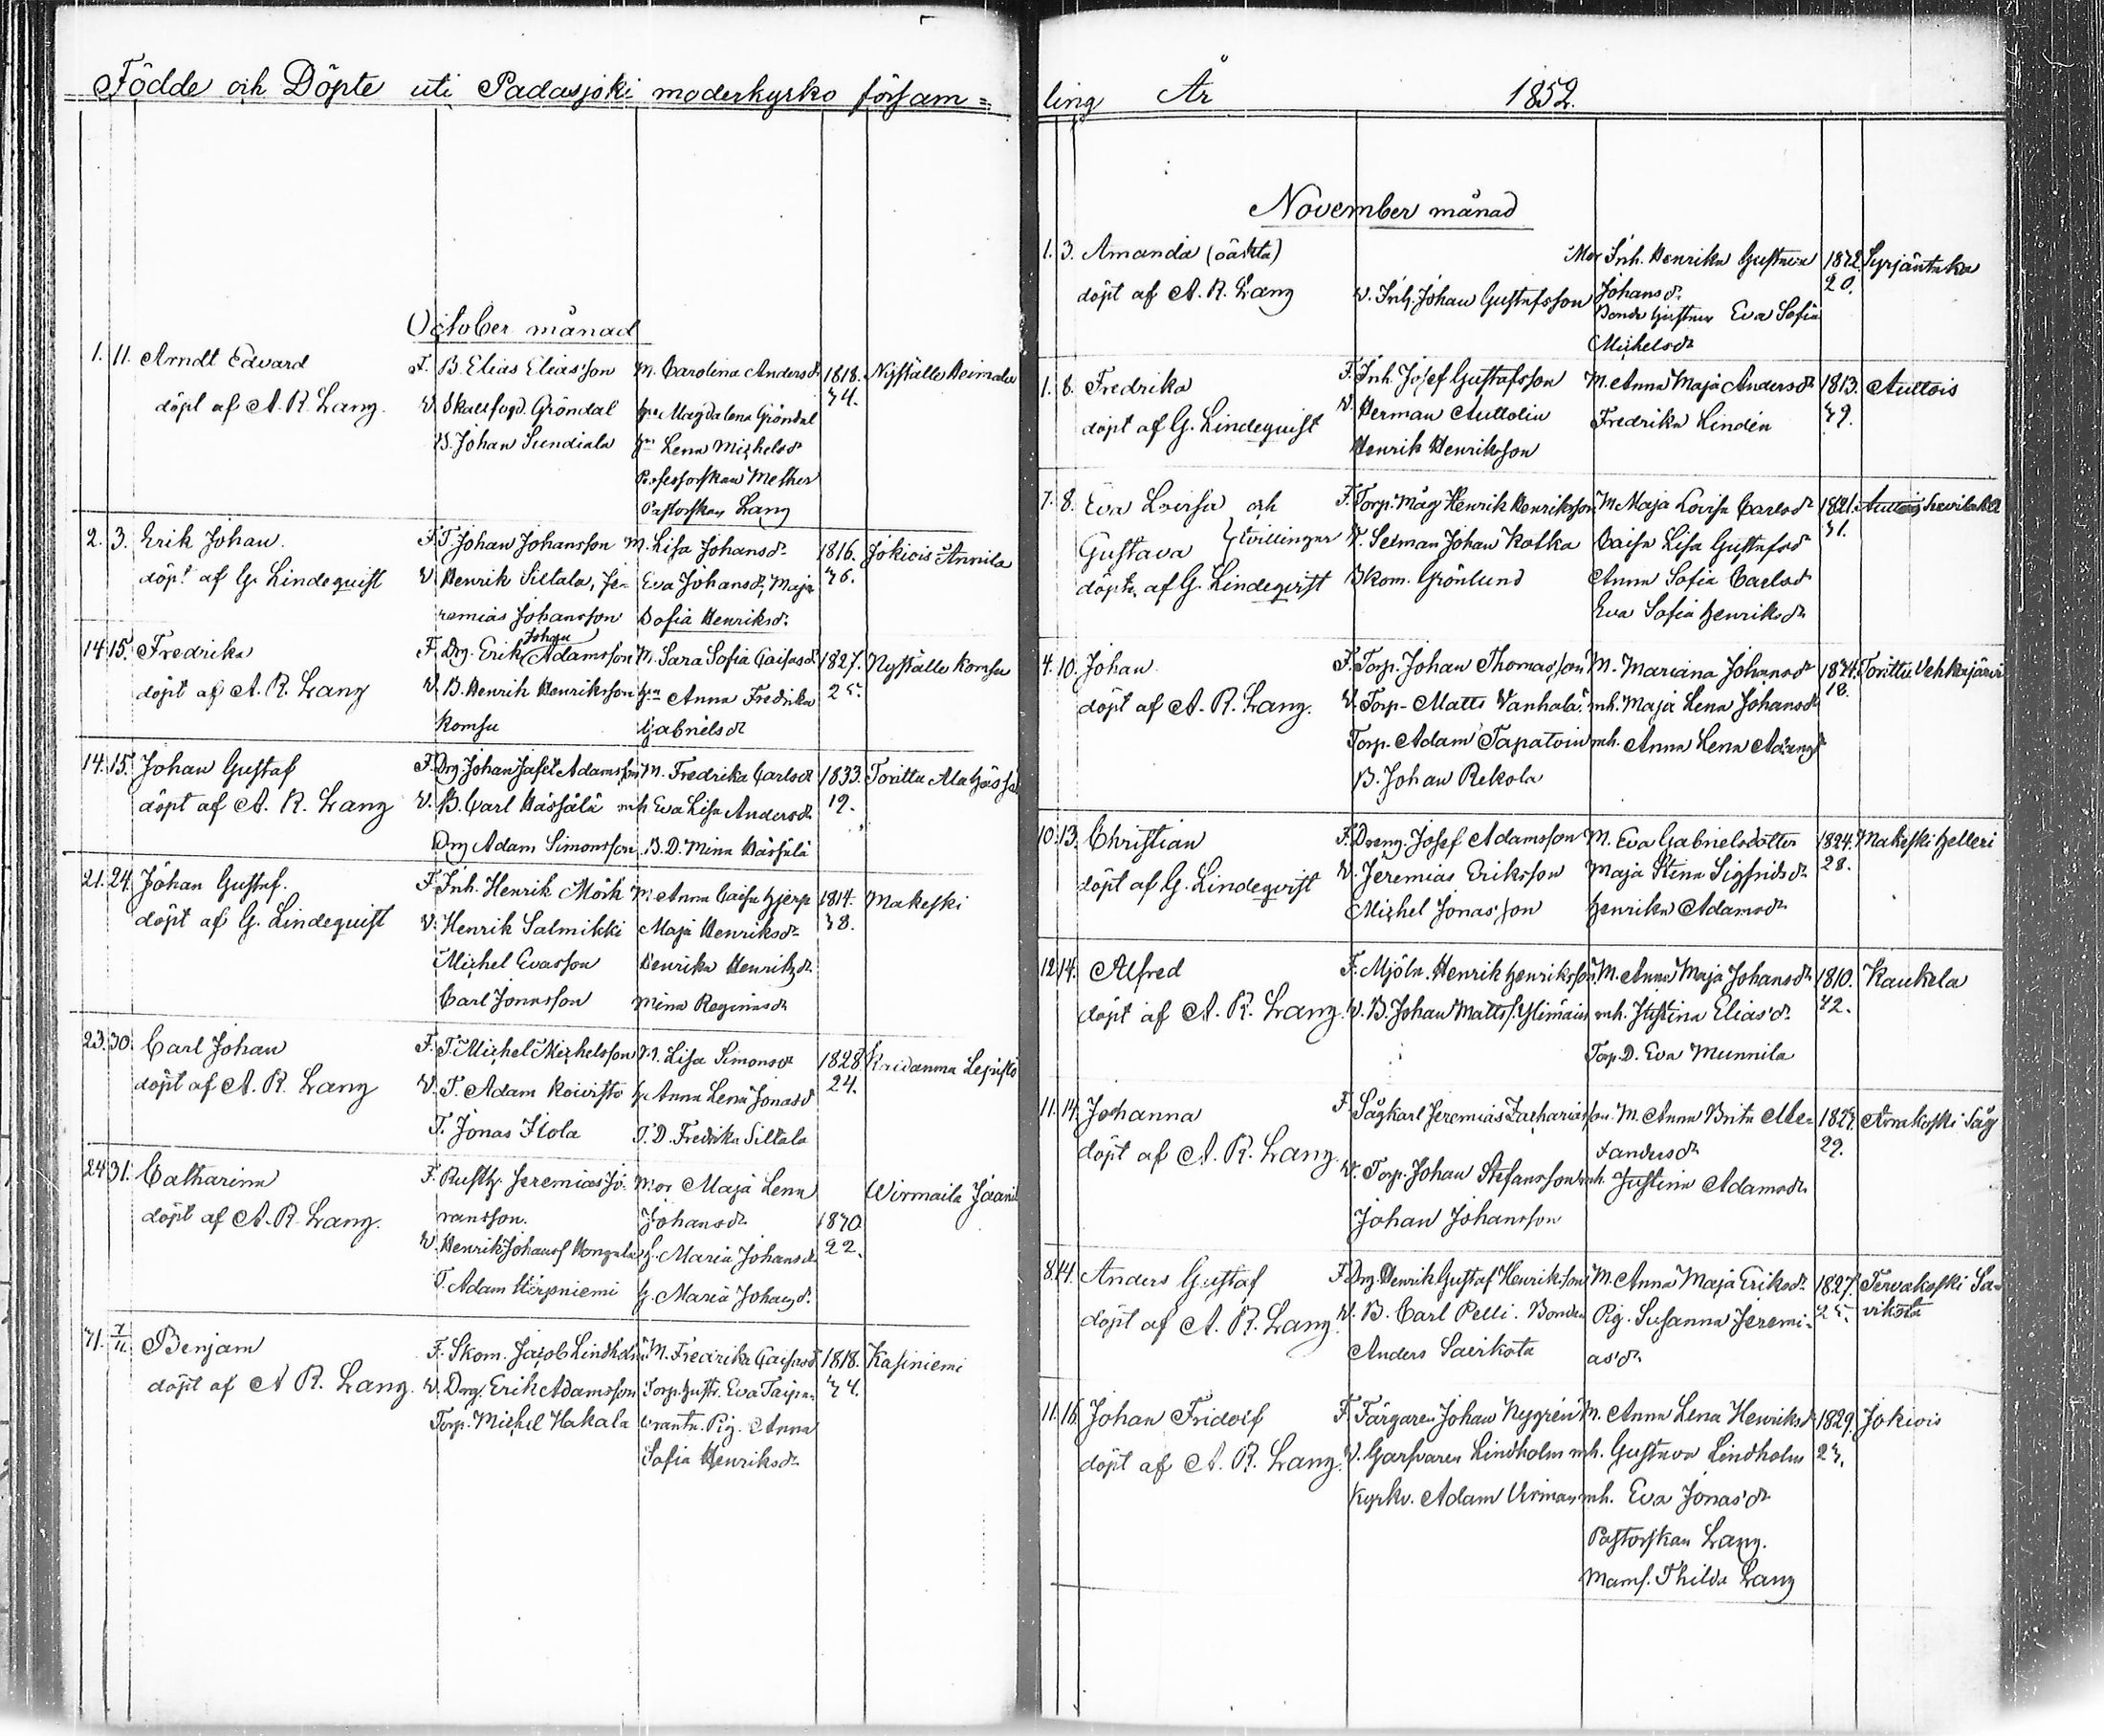 Födde och Döpte uti Padasjoki moderkyrko försam=
October månad
1. 11. Arndt Edvard F. B. Elias Eliasson M. Carolina Andersdr 1818. Nyställe Heimala
döpt af A. R. Lang. V. Skallfogd. Gröndal Magdalena Gröndal 34.
B. Johan Sundiala Lena Michelsdr
Professorskan Mether
Pastorskan Lang
2. 3. Erik Johan. F. T. Johan Johansson M. Lisa Johansdr 1816. Jokiois Annila
döpt af G. Lindequist V. Henrik Siltala, Je- Eva Johansdr, Maja 36.
remias Johansson Sofia Henriksdr.
14. 15. Fredrika F. Drg. Erik Johan Adamsson M. Sara Sofia Caisasdr 1827. Nyställe Komsu
döpt af A. R. Lang V. B. Henrik Henriksson Anna Fredrika 25.
Komsu Gabrielsdr
14. 15. Johan Gustaf F. Drg Johan Jafet Adamsson M. Fredrika Carlsdr 1833. Torittu Ala
döpt af A. R. Lang V. B. Carl Hässälä mh Eva Lisa Andersdr 19.
Drg Adam Simonsson B. D. Mina Hässälä
21. 24. Johan Gustaf. F. Inh. Henrik Mörk M. Anna Caisa Hjerp 1814. Makeski
döpt af G. Lindequist V. Henrik Salmikki Maja Henriksdr 38.
Michel Evasson Henrika Henriksdr
Carl Jonasson Mina Reginasdr
23. 30. Carl Johan F. T. Michel Michelsson M. Lisa Simonsdr 1828 Leppistö
döpt af A. R. Lang V. T. Adam Koivisto Anna Lena Jonasd 24.
T. Jonas Ilola T. D. Fredrika Siltala
24 31. Catharina F. Rusth. Jeremias Jö- Mor Maja Lena Wirmaila
döpt af A. R. Lang. ransson. Johansdr 1830
V. Henrik Johansson Maria Johansdr 22.
T. Adam Kirpniemi Maria Johansdr.
31. 7/11 Benjam F. Skom. Jacob Lindholm M. Fredrika Caisasdr 1818. Kasiniemi
döpt af A R. Lang. V. Drg. Erik Adamsson Torp. hustr. Eva Taipa- 34.
Torp. Michel Hakala Pig. Anna
Sofia Henriksdr
ling År 1852.
November månad
1. 3. Amanda (oäkta) Mor Inh. Henrika Gustava 1832. Syrjäntaka
döpt af A. R. Lang V. Inh. Johan Gustafsson Johansdr 20.
Bonde hustrun Eva Sofia
Michelsdr
1. 8. Fredrika F. Inh. Josef Gustafsson M. Anna Maja Andersdr 1813. Auttois
döpt af G. Lindequist V. Herman Auttolin Fredrika Lindén 39.
Henrik Henriksson
7. 8. Eva Lovisa och F. Torp. Måg Henrik Henriksson M. Maja Lovisa Carlsdr 1821.
Gustava } tvillingar V. Selman Johan Kolka Caisa Lisa Gustafsdr 31.
döpta af G. Lindequist Skom. Grönlund Anna Sofia Carlsdr
Eva Sofia Henriksdr
4. 10. Johan F. Torp. Johan Thomasson M. Mariana Johansdr 1834. Torittu Vehkajärvi
döpt af A. R. Lang. V. Torp. Matts Vanhala. mh. Maja Lena Johansdr 18.
Torp. Adam Tapatoin mh. Anna Lena
B. Johan Rekola
10. 13. Christian F. Dreng. Josef Adamsson M. Eva Gabrielsdotter 1824. Makeski Helleri
döpt af G. Lindequist V. Jeremias Eriksson Maja Stina Sigfridsdr 28.
Michel Jonasson Henrika Adamsdr
12 14. Alfred F. Mjöln. Henrik Henriksson M. Anna Maja Johansdr 1810. Kaukela
döpt af A. R. Lang. V. B. Johan Mattss. Ylimäin mh. Justina Eliasdr. 42.
Torp. D. Eva Munnila
11. 14. Johanna F. Sågkarl Jeremias Zachariasson. M. Anna Brita Alle- 1823. Arrakoski Såg
döpt af A. R. Lang. xandersdr 29.
V. Torp. Johan Stefansson mh. Justina Adamsdr.
Johan Johansson
8. 14. Anders Gustaf F. Drg. Henrik Gustaf Henriksson M. Anna Maja Eriksdr 1827. Tervakoski Sa-
döpt af A. R. Lang. V. B. Carl Pelli. Bonden Pig. Susanna Jeremi- 25. vikota
Anders Savikota asdr
11. 16. Johan Fridolf F. Färgaren Johan Nygrén M. Anna Lena Henriksd 1829. Jokiois
döpt af A. R. Lang. V. Garfvaren Lindholm mh. Gustava Lindholm 23.
Kyrkv. Adam Virman mh. Eva Jonasdr
Pastorskan Lang.
Mams. Thilda Lang